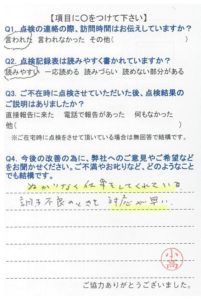 【項目に○をつけて下さい】
Q1. 点検の連絡の際、訪問時間はお伝えしていますか?
言われた 言われなかった その他(
Q2. 点検記録表は読みやすく書かれていますか?
読みやすい 一応読める 読みづらい 読めない部分がある
Q3. ご不在時に点検させていただいた後、点検結果の
ご説明はありましたか?
直接報告に来た 電話で報告があった 何もなかった
他( )
※ご在宅時に点検をさせて頂いている場合は無回答で結構です。
Q4. 今後の改善の為に、弊社へのご意見やご希望など
をお聞かせください。ご不満やお叱りなど、どのようなこと
でも結構です。
ぬかりなく仕事をしてくれている
調子不良のときも対応が早い。
小高
ご協力ありがとうございました。